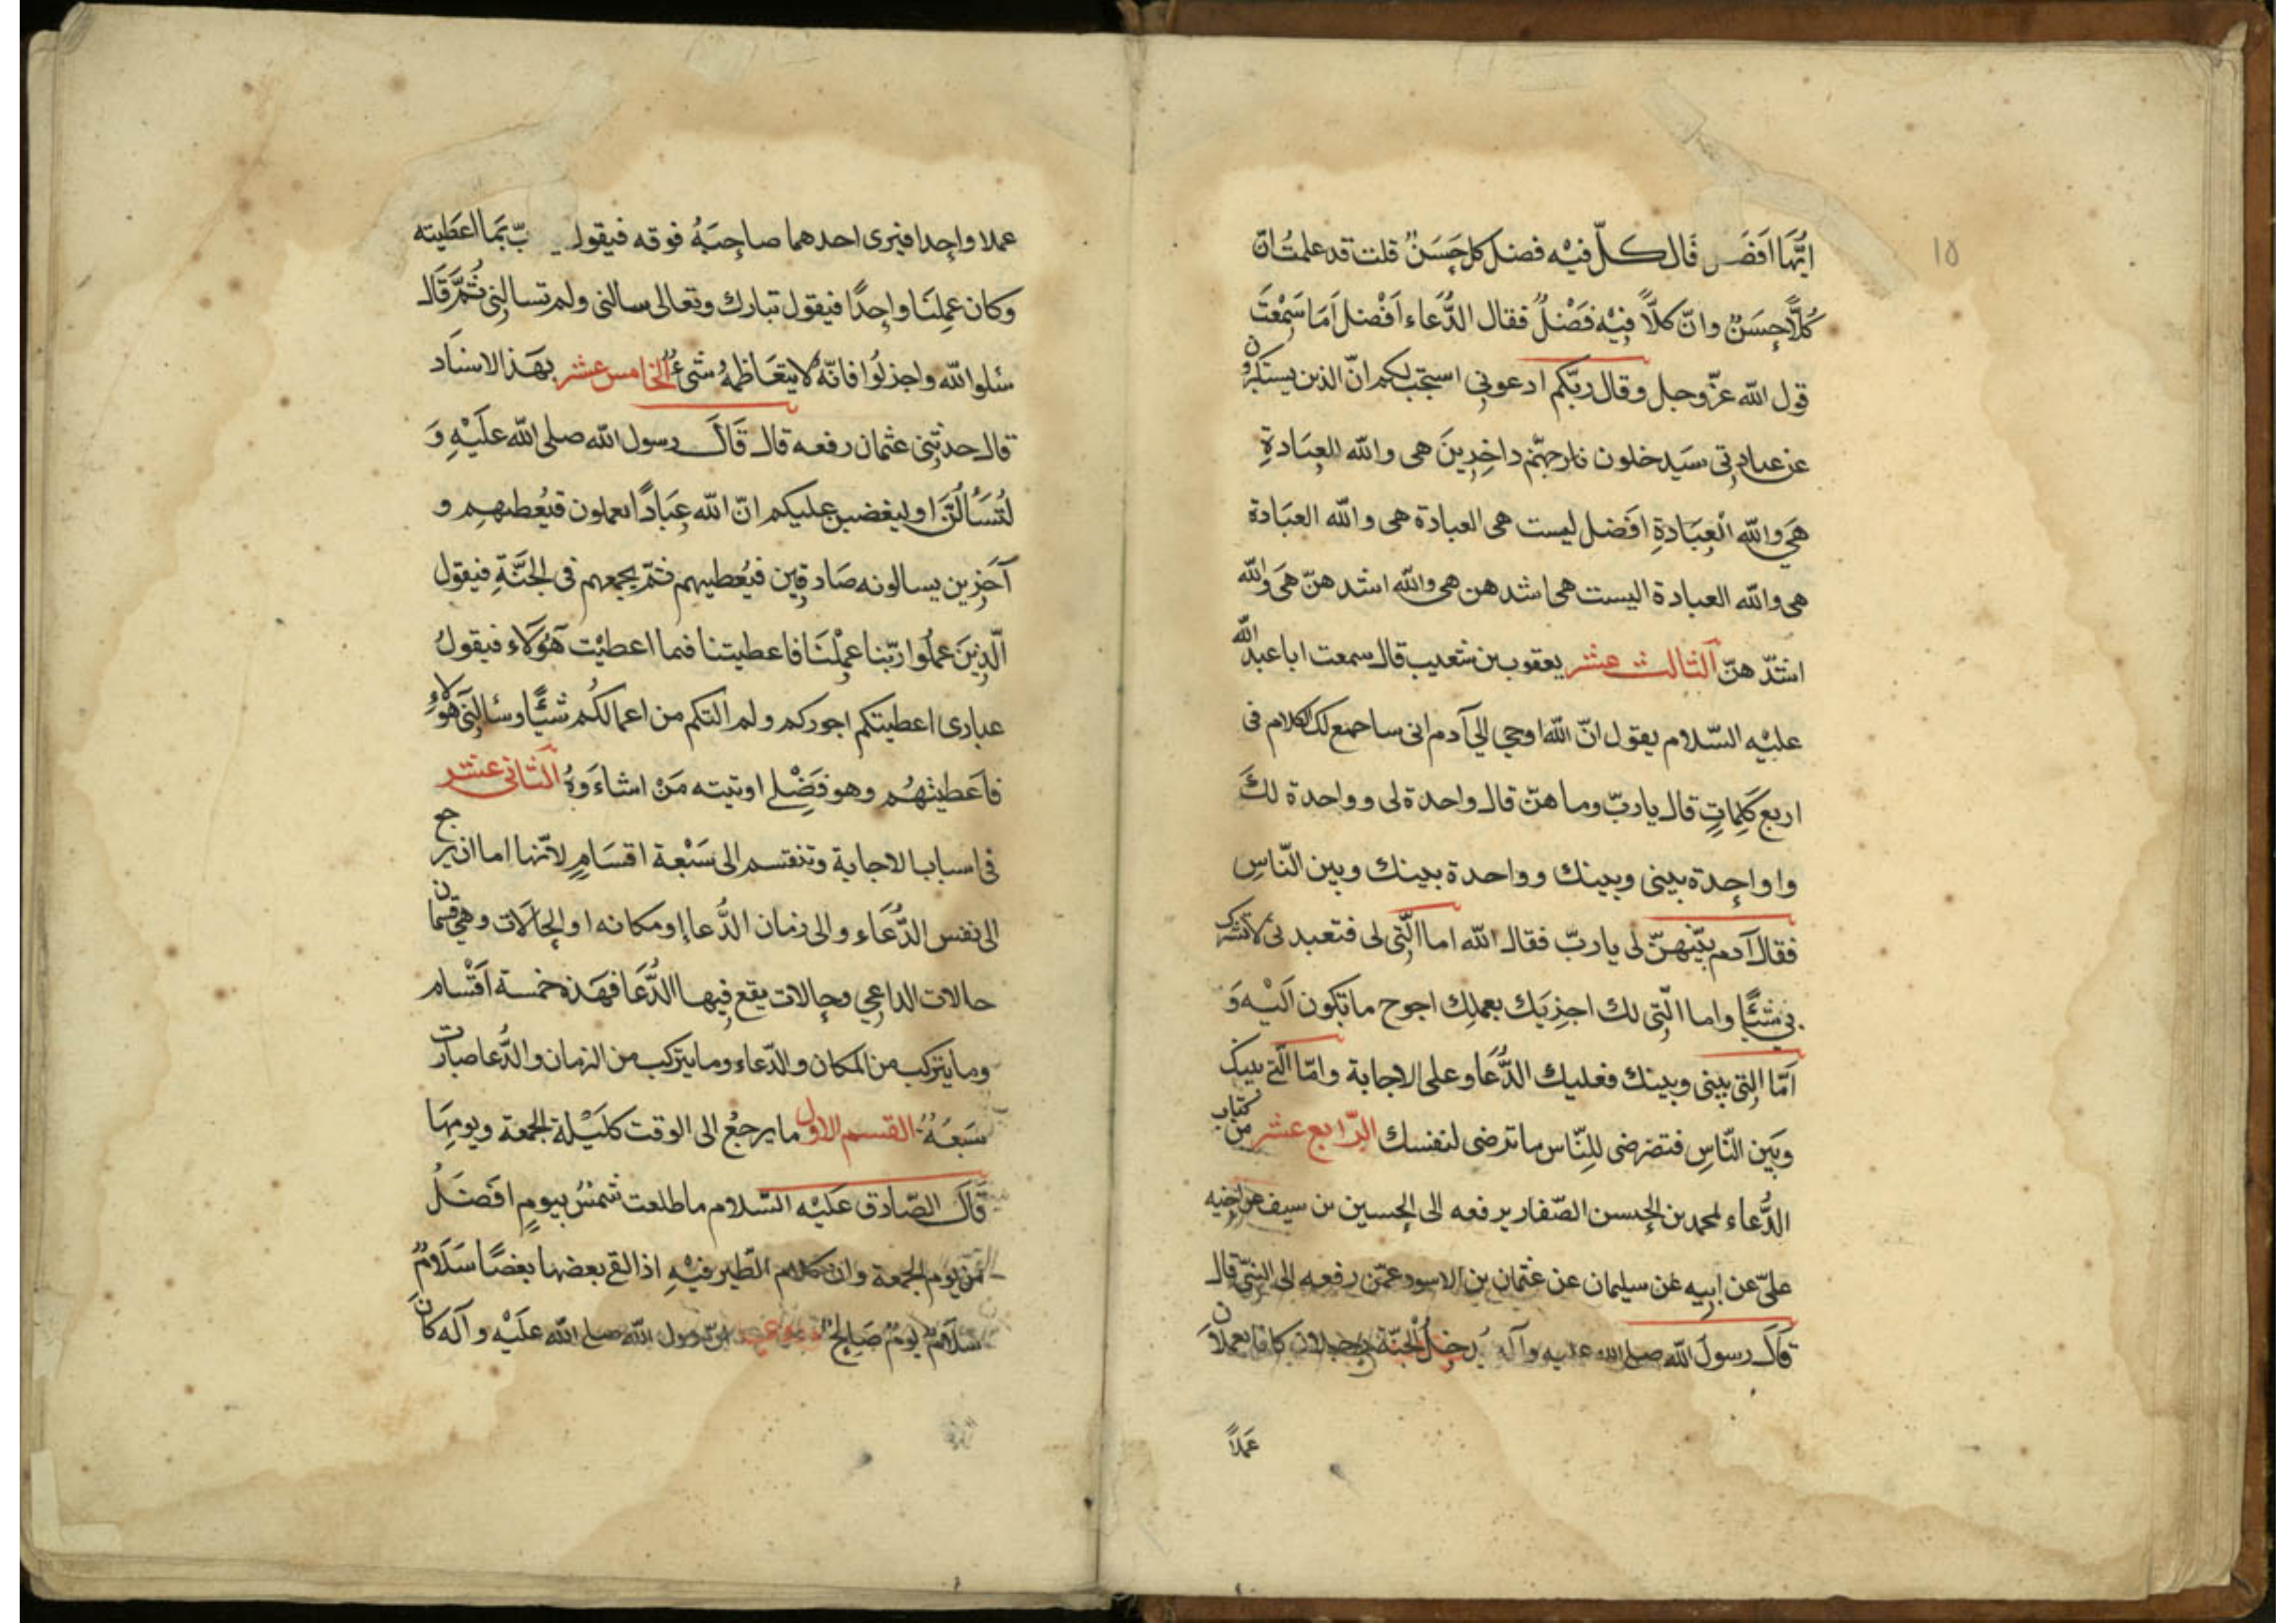 ١٥
ايّها افضل قال كلّ فيه فضل كل حَسَنٌ قلت قد علمتُ انّ
كُلّاً حسَنٌ وانّ كلاًّ فيْه فَضْلٌ فقال الدُّعَاء اَفْضل اَمَا سَمْعْتَ
قول الله عزّ وجل وقال ربّكم ادعونى استجب لكم انّ الذين يستكبرون
عن عبادتى سَيَدخلون نار جهنّم داخِرِينَ هى والله العِبَادةِ
هَىَ والله الْعِبَادةِ افَضل ليست هى العبادة هى والله العبَادة
هى والله العبادة اليست هى اشدهن هى والله اشدهنّ هىَ والله
اشدّهنّ الثالث عشر يعقوب بن شعيب قال سمعت ابا عبد الله
عليْه السّلام يقول انّ الله اوحى الى آدم انى ساجمع لك الكلام فى
اربع كَلِماتٍ قال يا ربّ وما هنّ قال واحدة لى و واحدة لكَ
وا واحِدة بينى وبينك وواحدة بينك وبين النّاسِ
فقال آدم بيّنهنّ لى يا ربّ فقال الله اما الّتى لى فتعبدنى لا تشرك
بى شيًْا واما الّتى لك اجزيَك بعملِك احوج ما تكون اليْه وَ
اَمّا التى بينى وبينك فعليك الدُّعَا وعلى الاجابة وامّا الّتى بينك
وبَين النّاسِ فتضرضى للِنّاس ما ترضى لنفسك الرّابع عشر من كتاب
الدُّعاء لمحمد بن الحسن الصّفار يرفعه الى الحسين بن سيف عن اخيه
علىّ عن ابيه عَن سليمان عن عثمان بن الاسود عمّن رفعه الى النبىّ قال
قال رسول الله صلى الله عليه وآله يدخل الجنّة رجلان كانا يعملان
عَملاً
عملا واحِدا فيرى احدهما صاحِبَهُ فوقه فيقول بّ بَما اعَطيته
وكان عمِلنَا واحِدًا فيقول تبارك وتعالى سالنى ولم تسالنِى ثُمَّ قَال
سئلوا الله واجزلُوا فانّه لا يتعَاظمهُ شىءٌ الخامس عشر بهَذا الاسنَاد
قال حدثنى عثمان رفعه قال قَالَ رسول الله صلى الله علَيْهِ وَ
لتُسَألُنَّ او ليغضبن عليكم انّ الله عِبَادًا يعملون فيُعطيهِم و
آخَرِين يسالونه صَادقين فيُعطيهم فثمّ يجمعهم فى الجنَّةِ فيقول
الّذِينَ عمُلوا ربّنا عمِلْنَا فاعطيتنا فما اعطيْت هَؤلَاء فيقولُ
عبارى اعطيتكم اجوركم ولم التكم من اعمالكُم شيًْا وسالنِى هؤلاءِ
فاَعَطيتهُم وهو فَضْلى اوتيته مَنْ اشاءَ وَهُ الثانى عشر
فى اسباب الاجابة وتنقسم الى سَبْعة اقسَامٍ لانّها اما ان يرجح
الى نفس الدُّعَاء والى زمان الدُّعا او مكانه او الحالَات وهى قسمان
حالات الداعِى وحالات يقع فيها الدُّعَا فهَذه خمسة اَقْسام
وما يتركب من المكان والدّعاء وما يتركب من الزمان والدُّعا صارت
سَبَعَهُ القسم الاول ما يرجعُ الى الوقت كلَيْلة الجمعة ويومِهَا
قَالَ الصّادق عليْه السّلام ما طلعت شمسٌ بيومٍ افَضَلُ
من يوم الجمعة وان كلام الطّير فيْهِ اذا لقى بعضها بعَضًا سَلَامٌ
سَلَامٌ يومٌ صَالِحٌ انّ رسول الله صلى الله علَيْه وآله كانَ